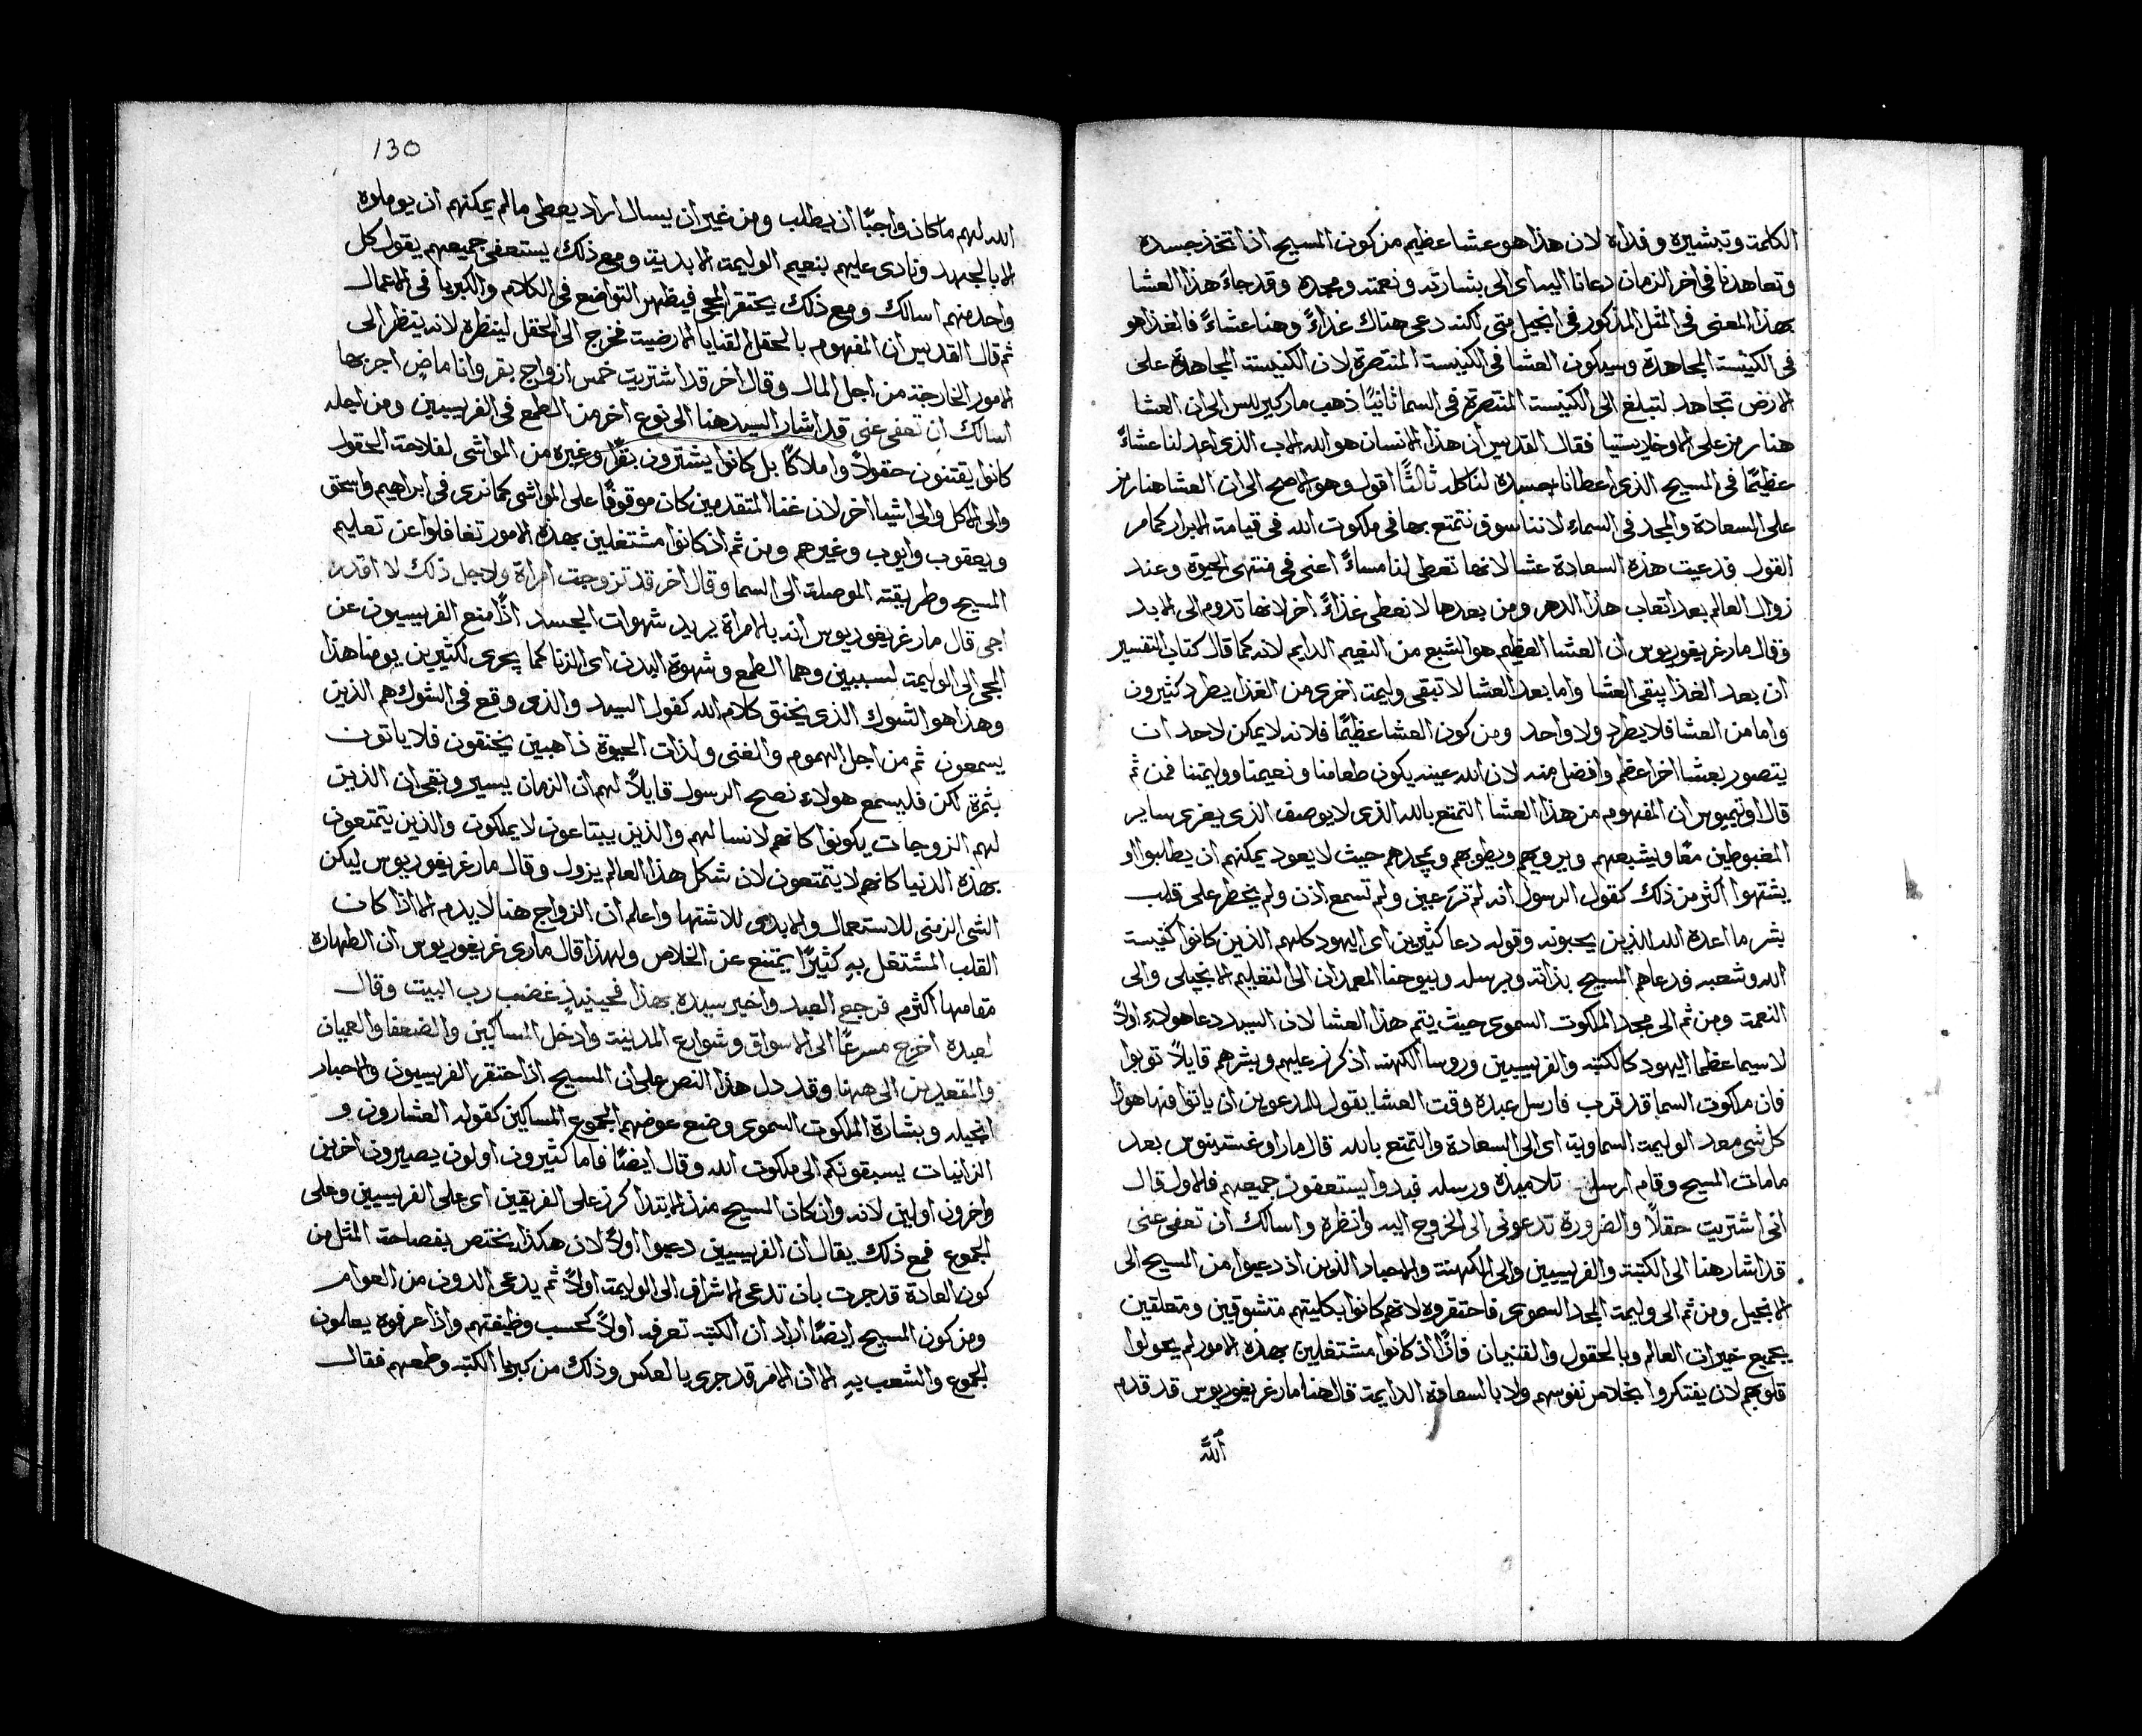 الكلمة وتبشيره وفداه لان هذا هو عشا عظيم من كون المسيح اذ اتخذ جسده
وتعاهدنا في اخر الزمان دعانا اليه اي الى بشارته ونعمته ومجده وقد جاء هذا العشا
بهذا المعنى في المثل المذكور في انجيل متى لكنه دعى هناك غداءً وهنا عشاءً فالغدا هو
في الكنيسة المجاهدة وسيكون العشا في الكنيسة المنتصرة لان الكنيسة المجاهدة على
الارض تجاهد لتبلغ الى الكنيسة المنتصرة في السما ثانيًا ذهب مار كيرللس الى ان العشا
هنا رمز على الاوخاريستيا فقال القديس ان هذا الانسان هو الله الاب الذي اعد لنا عشاءً
عظيمًا في المسيح الذي اعطانا جسده لناكله ثالثًا اقول وهو الاصح الى ان العشا هنا رمز
على السعادة والمجد في السماء لاننا سوف نتمتع بها في ملكوت الله في قيامة الابرار كما مر
القول فدعيت هذه السعادة عشا لانها تعطى لنا مساءً اعني في منتهى الحيوة وعند
زوال العالم بعد اتعاب هذا الدهر ومن بعدها لا نعطى غذاءً اخر لانها تدوم الى الابد
وقال مار غريغوريوس ان العشا العظيم هو الشبع من النعيم الدايم لانه كما قال كتاب التفسير
ان بعد الغذا يبقى العشا واما بعد العشا لا تبقى وليمة اخرى من الغذا يطرد كثيرون
واما من العشا فلا يطرد ولا واحد ومن كون العشا عظيمًا فلانه لا يمكن لاحد ان
يتصور بعشا اخر اعظم وافضل منه لان الله عينه يكون طعامنا ونعيمنا ووليمتنا فمن ثم
قال اوتيميوس ان المفهوم من هذا العشا التمتع بالله الذي لا يوصف الذي يغري ساير
المغبوطين معًا ويشبعهم ويرويهم ويطوبهم ويمجدهم حيث لا يعود يمكنهم ان يطلبوا او
يشتهوا اكثر من ذلك كقول الرسول انه لم تر عين ولم تسمع اذن ولم يخطر على قلب
بشر ما اعده الله للذين يحبونه وقوله دعا كثيرين اي اليهود كلهم الذين كانوا كنيسة
الله وشعبه فدعاهم المسيح بذاته وبرسله وبيوحنا المعمدان الى التعليم الانجيلي والى
النعمة ومن ثم الى مجد الملكوت السموي حيث يتم هذا العشا لان السيد دعا هولاء اولاً
لا سيما عظما اليهود كالكتبه والفريسيين وروسا الكهنه اذ كرز عليهم وبشرهم قايلاً توبوا
فان ملكوت السما قد قرب فارسل عبده وقت العشا يقول للمدعوين ان ياتوا فها هوذا
كل شي معد الوليمة السماوية اي الى السعادة والتمتع بالله قال مار اوغسطينوس بعد
ما مات المسيح وقام ارسل تلاميذه ورسله فبدوا يستعفون جميعهم فالاول قال
اني اشتريت حقلاً والضرورة تدعوني الى الخروج اليه وانظره واسالك ان تعفى عني
قد اشار هنا الى الكتبة والفريسيين والى الكهنة والاحبار الذين اذ دعيوا من المسيح الى
الانجيل ومن ثم الى وليمة المجد السموي فاحتقروه لانهم كانوا بكليتهم متشوقين ومتعلقين
بجميع خيرات العالم وبالحقول والقنيان فاذًا اذ كانوا مشتغلين بهذه الامور لم يحولوا
قلوبهم لان يفتكروا بخلاص نفوسهم ولا بالسعادة الدايمة قال هنا مار غريغوريوس قد قدم
الله
130
الله لهم ما كان واجبًا ان يطلب ومن غير ان يسال اراد يعطى ما لم يمكنهم ان يوملوه
الا بالجهد ونادى عليهم بنعيم الوليمة الابدية ومع ذلك يستعفى جميعهم يقول كل
واحد منهم اسالك ومع ذلك يحتقر المجي فيظهر التواضع في الكلام والكبريا في الاعمال
ثم قال القديس ان المفهوم بالحقل القنايا الارضية فخرج الى الحقل لينظره لانه ينظر الى
الامور الخارجة من اجل المال وقال اخر قد اشتريت خمس ازواج بقر وانا ماضٍ اجربها
اسالك ان تعفى عني قد اشار السيد هنا الى نوع اخر من الطمع في الفريسيين ومن اجله
كانوا يقتنون حقولاً واملاكًا بل كانوا يشترون بقرًا وغيره من المواشي لفلاحة الحقول
والى الاكل والى اشيا اخر لان غنا المتقدمين كان موقوفًا على المواشي كما نرى في ابراهيم واسحق
ويعقوب وايوب وغيرهم ومن ثم اذ كانوا مشتغلين بهذه الامور تغافلوا عن تعليم
المسيح وطريقته الموصلة الى السما وقال اخر قد تزوجت امراة ولاجل ذلك لا اقدر
اجي قال مار غريغوريوس انه بالامراة يريد شهوات الجسد اذًا منع الفريسيون عن
المجي الى الوليمة لسببين وهما الطمع وشهوة البدن اي الزنا كما يجري لكثيرين يومنا هذا
وهذا هو الشوك الذي يخنق كلام الله كقول السيد والذي وقع في الشوك هم الذين
يسمعون ثم من اجل الهموم والغنى ولذات الحيوة ذاهبين يختنقون فلا ياتون
بثمرة لكن فليسمع هولاء نصح الرسول قايلاً لهم ان الزمان يسير وبقي ان الذين
لهم الزوجات يكونوا كانهم لا نسا لهم والذين يبتاعون لا يملكون والذين يتمتعون
بهذه الدنيا كانهم لا يتمتعون لان شكل هذا العالم يزول وقال مار غريغوريوس ليكن
الشي الزمني للاستعمال والابدي للاشتها واعلم ان الزواج هنا لا يذم الا اذا كان
القلب المشتغل به كثيرًا يمتنع عن الخلاص ولهذا قال ماري غريغوريوس ان الطهارة
مقامها اكثرم فرجع العبد واخبر سيده بهذا فحينيذٍ غضب رب البيت وقال
لعبده اخرج مسرعًا الى الاسواق وشوارع المدينة وادخل المساكين والضعفا والعميان
والمقعدين الى ههنا وقد دل هذا النص على ان المسيح اذ احتقر الفريسيون والاحبار
انجيله وبشارة الملكوت السموي وضع عوضهم الجموع المساكين كقوله العشارون و
الزانيات يسبقونكم الى ملكوت الله وقال ايضًا فاما كثيرون اولون يصيرون اخرين
واخرون اولين لانه وان كان المسيح منذ الابتدا كرز على الفريقين اي على الفريسيين وعلى
الجموع فمع ذلك يقال ان الفريسيين دعيوا اولاً لان هكذا يختص بفصاحة المثل من
كون العادة قد جرت بان تدعى الاشراف الى الوليمة اولاً ثم يدعى الدون من العوام
ومن كون المسيح ايضًا اراد ان الكتبه تعرفه اولاً كحسب وظيفتهم واذا عرفوه يعلمون
الجموع والشعب به الا ان الامر قد جرى بالعكس وذلك من كبريا الكتبه وطمعهم فقال